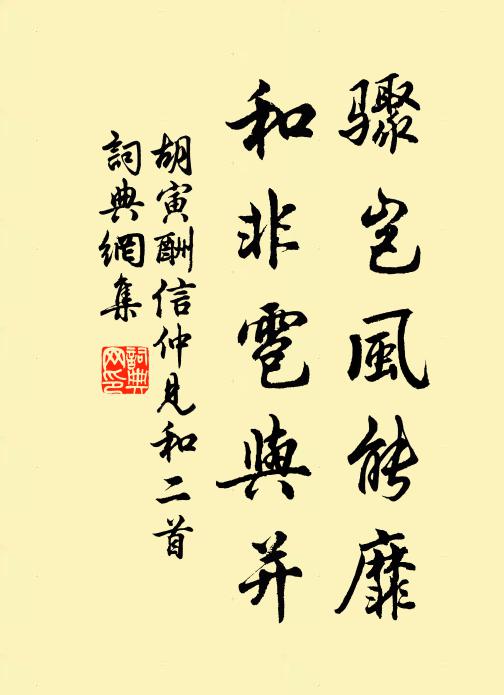 驟豈風能靡
和非雹與并
胡寅酬信仲見和二首
詞典網集
詞典网印